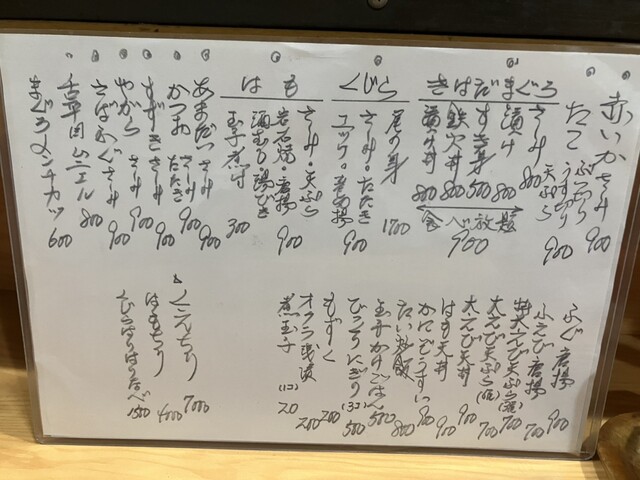 赤いかさしみ 900
たこ ぶつ切り うすづくり 天ぷら 900
きはだまぐろ
さしみ 900
漬け 800
すき身 500
鉄火丼 800
漬け丼 800
食べ放題 900
くじら
尾の身 1700
さしみ・たたき
ユッケ・竜田揚 900
はも
さしみ・天ぷら
岩石揚・唐揚
酒むし・湯びき 900
玉子煮付 300
あまだいさしみ 900
かつお さしみ たたき 900
すずきさしみ 900
やがらさしみ 900
さばふぐさしみ 900
舌平目ムニエル 800
まぐろメンチカツ 600
ふぐ唐揚 900
小えび唐揚 700
特大えび天ぷら 700
大えび天ぷら 700
大えび天丼 900
はも天丼 900
かにぞうすい 900
たい炒飯 800
玉子かけごはん 500
びっくりにぎり(3コ) 500
もずく 200
オクラ浅漬 200
煮玉子 (1コ) 70
くえちり 7000
はもちり 4000
くじらはりはりなべ 1500